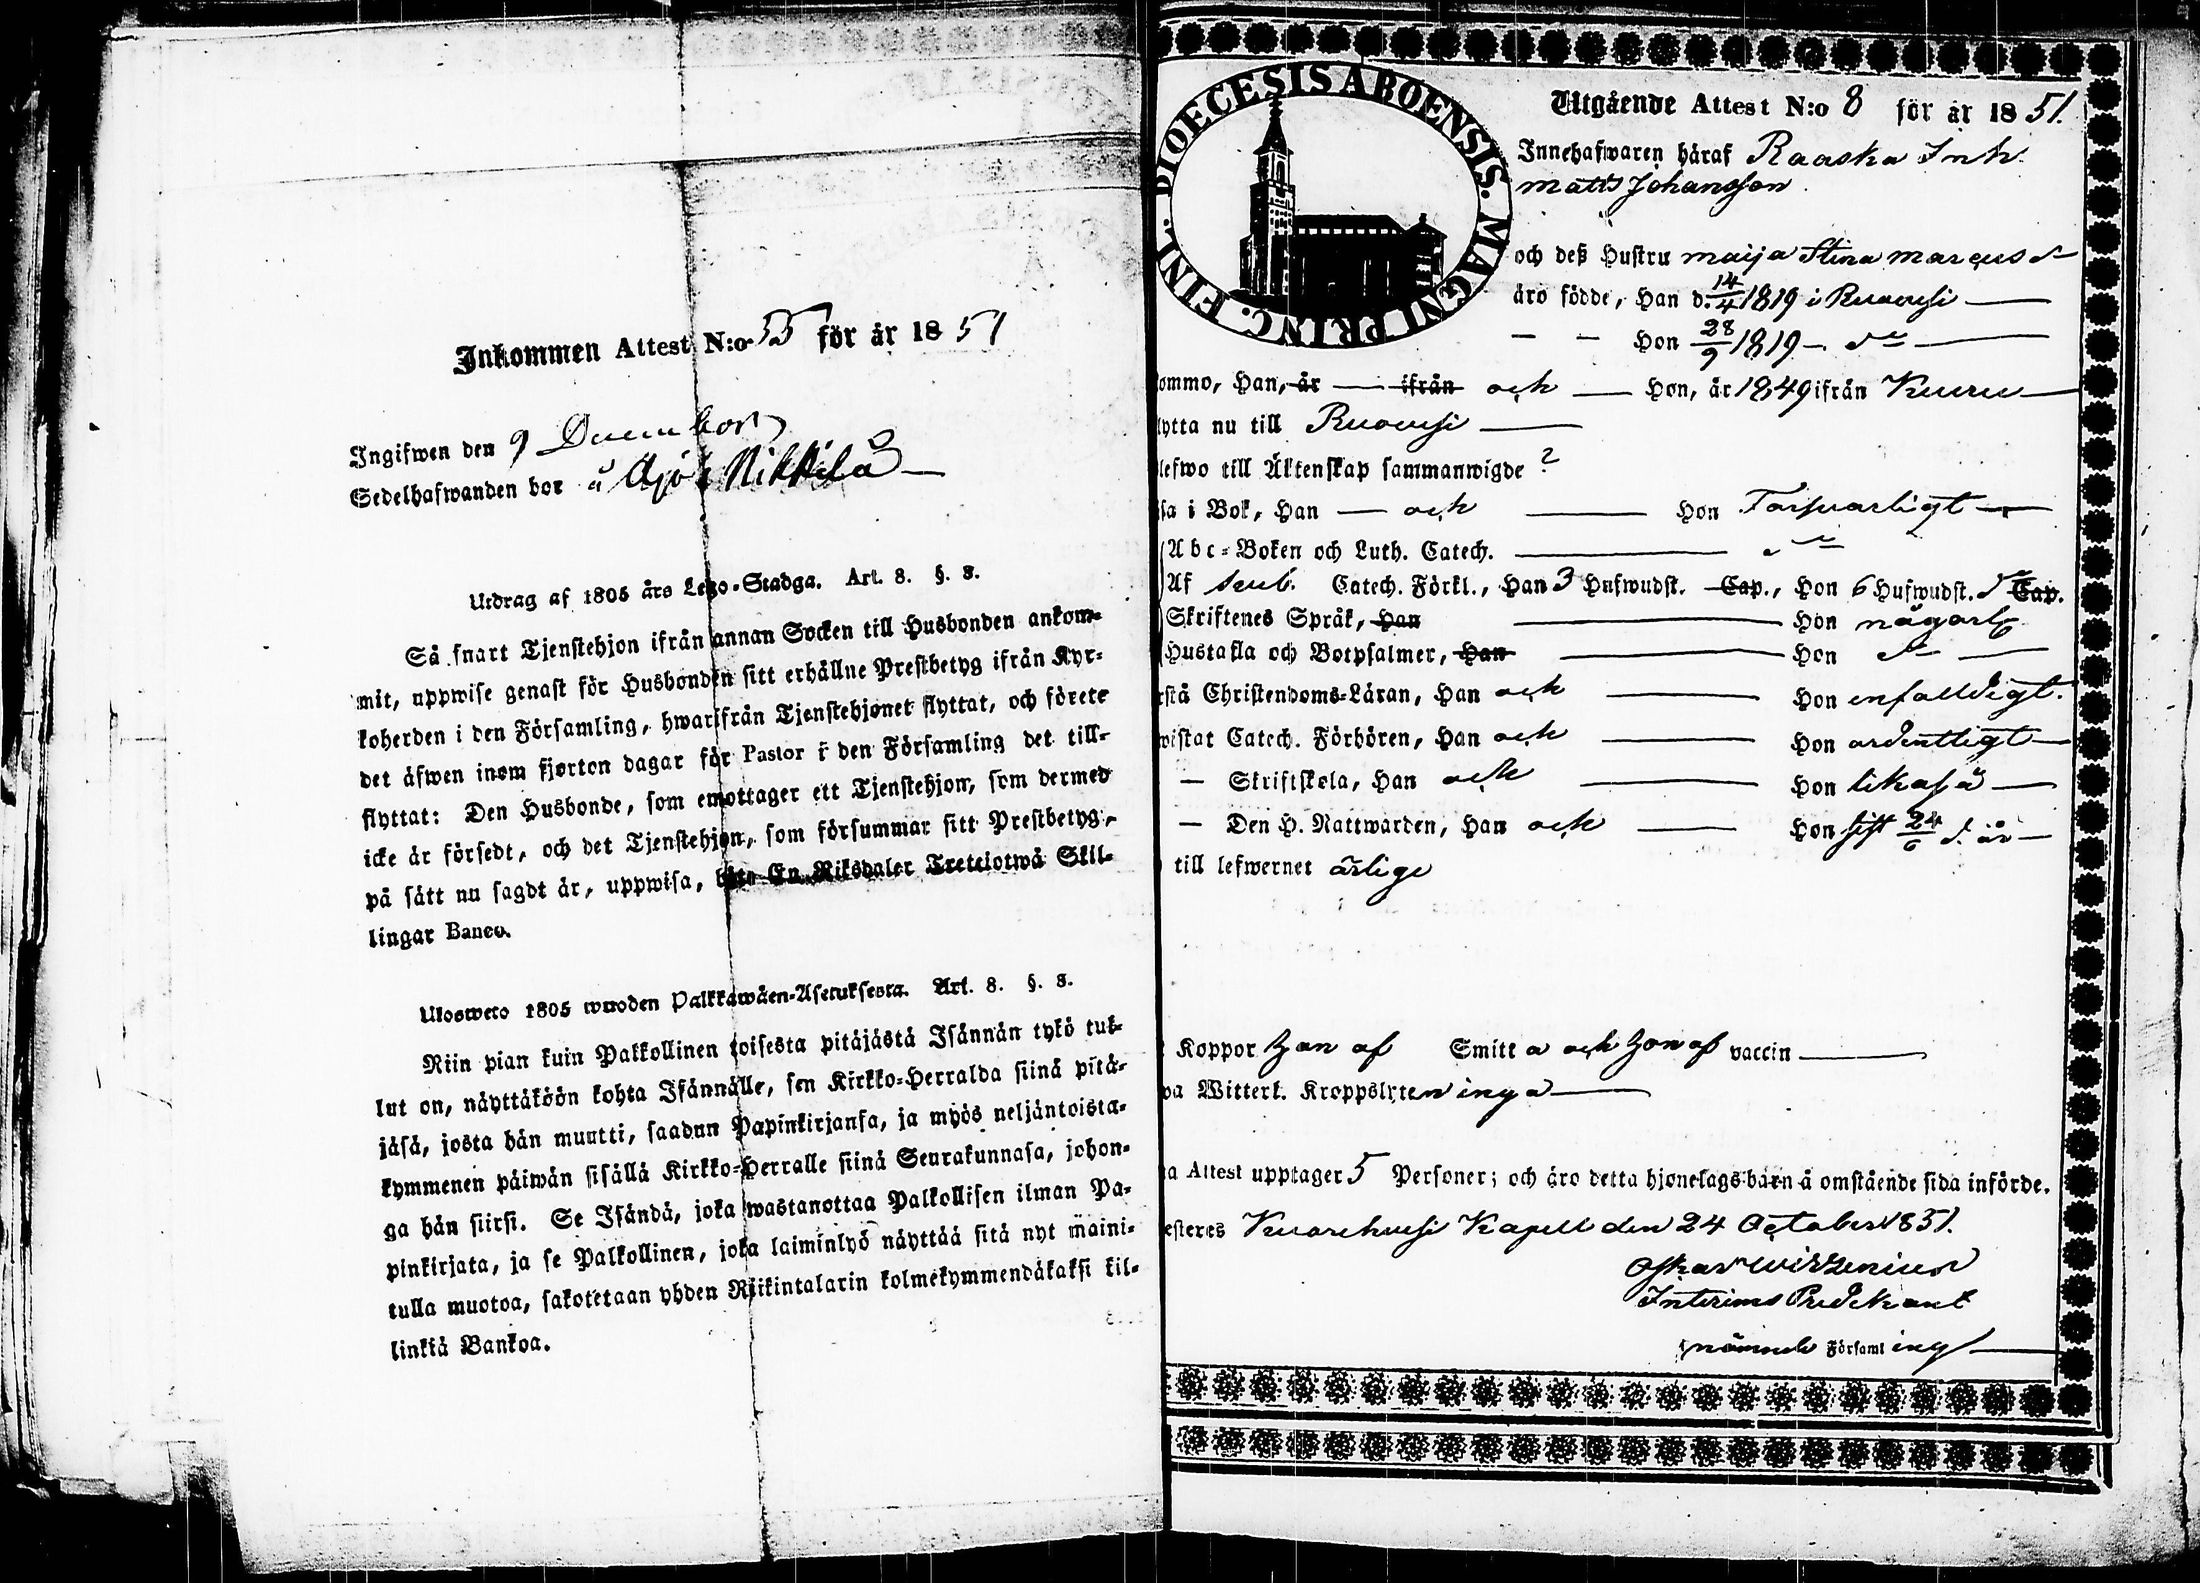 Inkommen Attest N:o 55 för år 1851
Ingifwen den 9 December
Sedelhafwanden bor å Äjö Nikkilä
Utdrag af 1805 års Lego-Stadga. Art. 8. §. 8.
Så snart Tjenstehjon ifrån annan Socken till Husbonden ankom-
mit, uppwise genast för Husbonden sitt erhållne Prestbetyg ifrån Kyr-
koherden i den Församling, hwarifrån Tjenstehjonet flyttat, och förete
det äfwen inom fjorton dagar för Pastor i den Församling det till-
flyttat: Den Husbonde, som emottager ett Tjenstehjon, som dermed
icke är försedt, och det Tjenstehjon, som försummar sitt Prestbetyg,
på sätt nu sagdt är, uppwisa, böte En Riksdaler Trettiotwå Skil-
lingar Banco.
Uloswето 1805 wuoden Palkkawäen-Asetuksesta. Art. 8. §. 8.
Niin pian kuin Palkollinen toisesta pitäjästä Isännän tykö tul-
lut on, näyttäköön kohta Isännälle, sen Kirkko-Herralda siinä pitä-
jäsä, josta hän muutti, saadun Papinkirjansa, ja myös neljäntoista-
kymmenen päiwän sisällä Kirkko-Herralle siinä Seurakunnasa, johon-
ga hän siirsi. Se Isändä, joka wastanottaa Palkollisen ilman Pa-
pinkirjata, ja se Palkollinen, joka laiminlyö näyttää sitä nyt maini-
tulla muotoa, sakotetaan yhden Riikintalarin kolmekymmendäkaksi kil-
linkiä Bankoa.
DIOECESIS ABOENSIS. MAGNI PRINC. FINL.
Utgående Attest N:o 8 för år 1851.
Innehafwaren häraf Raaska Inh.
Matts Johansson
och deß Hustru Maija Stina Marcus dr
äro födde, Han d. 14/4 1819 i Ruovesi
— — Hon 28/9 1819 — do
ommo, Han, år — ifrån och — Hon, år 1849 ifrån Kuru
lytta nu till Ruovesi
lefwo till Äktenskap sammanwigde ?
sa i Bok, Han — och — Hon Försvarligt
Abc-Boken och Luth. Catech. — do
Af Catech. Förkl., Han 3 Hufwudst. Cap., Hon 6 Hufwudst. do Cap.
Skriftenes Språk, Han — Hon något
Hustafla och Botpsalmer, Han — Hon do
rstå Christendoms-Läran, Han och — Hon enfaldigt.
wistat Catech. Förhören, Han och — Hon ordentligt
— Skriftskola, Han och — Hon likaså
— Den H. Nattwarden, Han och — Hon sist 24/6 d. år
till lefwernet ärlige
Koppor han af Smitt a och hon af vaccin
pa Witterl. Kroppslyten inga
na Attest upptager 5 Personer; och äro detta hjonelags barn å omstående sida införde.
esteres Kuorehvesi Kapell den 24 October 1851.
Oskar Wirzenius
Interims Predikant
nämnde Församl ing